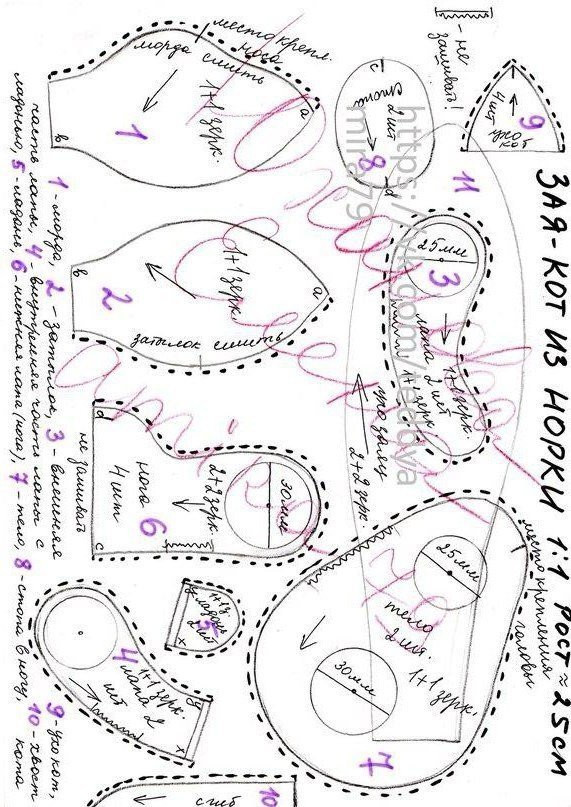 ЗАЯ-КОТ ИЗ НОРКИ 1:1 РОСТ ≈ 25см
- не зашивать!
место крепл. носа
морда сшить
1+1 зерк.
1
а
в
стопа
2 шт
8
с
d
9
4 шт ухо кот
11
25мм
3
лапа 2 шт
1+1 зерк.
1+1 зерк.
ухо зайц
2+2 зерк.
https://vk.com/ledibya
mira79
2
1+1 зерк.
затылок сшить
а
в
не зашивать
нога
4 шт
6
2+2 зерк.
30мм
d
с
место крепления головы
25мм
тело
2 шт.
1+1 зерк.
30мм
7
1+1з.
ладонь
2 шт
5
х
4
1+1 зерк.
лапа 2 шт
х
сгиб
10
1-морда, 2-затылок, 3-внешняя
часть лапы, 4-внутренняя часть лапы с
ладонью, 5-ладонь, 6-нижняя лапа (нога), 7-тело, 8-стопа в ногу,
9-ухо кот,
10-хвост
кота